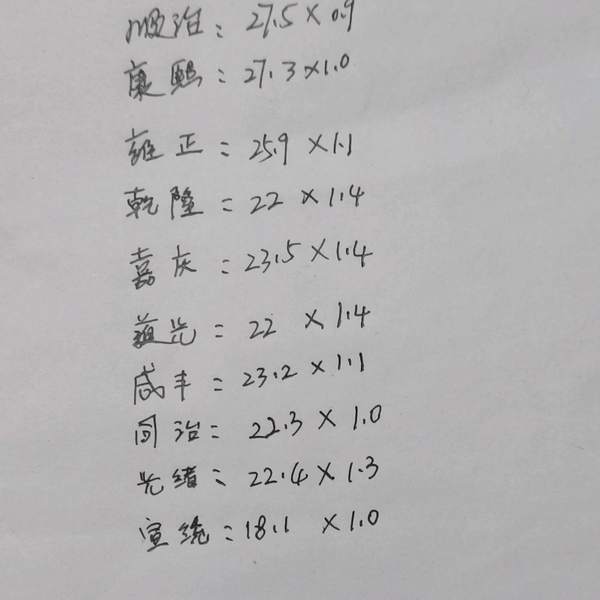 顺治：27.5×0.9
康熙：27.3×1.0
雍正：25.9×1.1
乾隆：22×1.4
嘉庆：23.5×1.4
道光：22×1.4
咸丰：23.2×1.1
同治：22.3×1.0
光绪：22.4×1.3
宣统：18.1×1.0